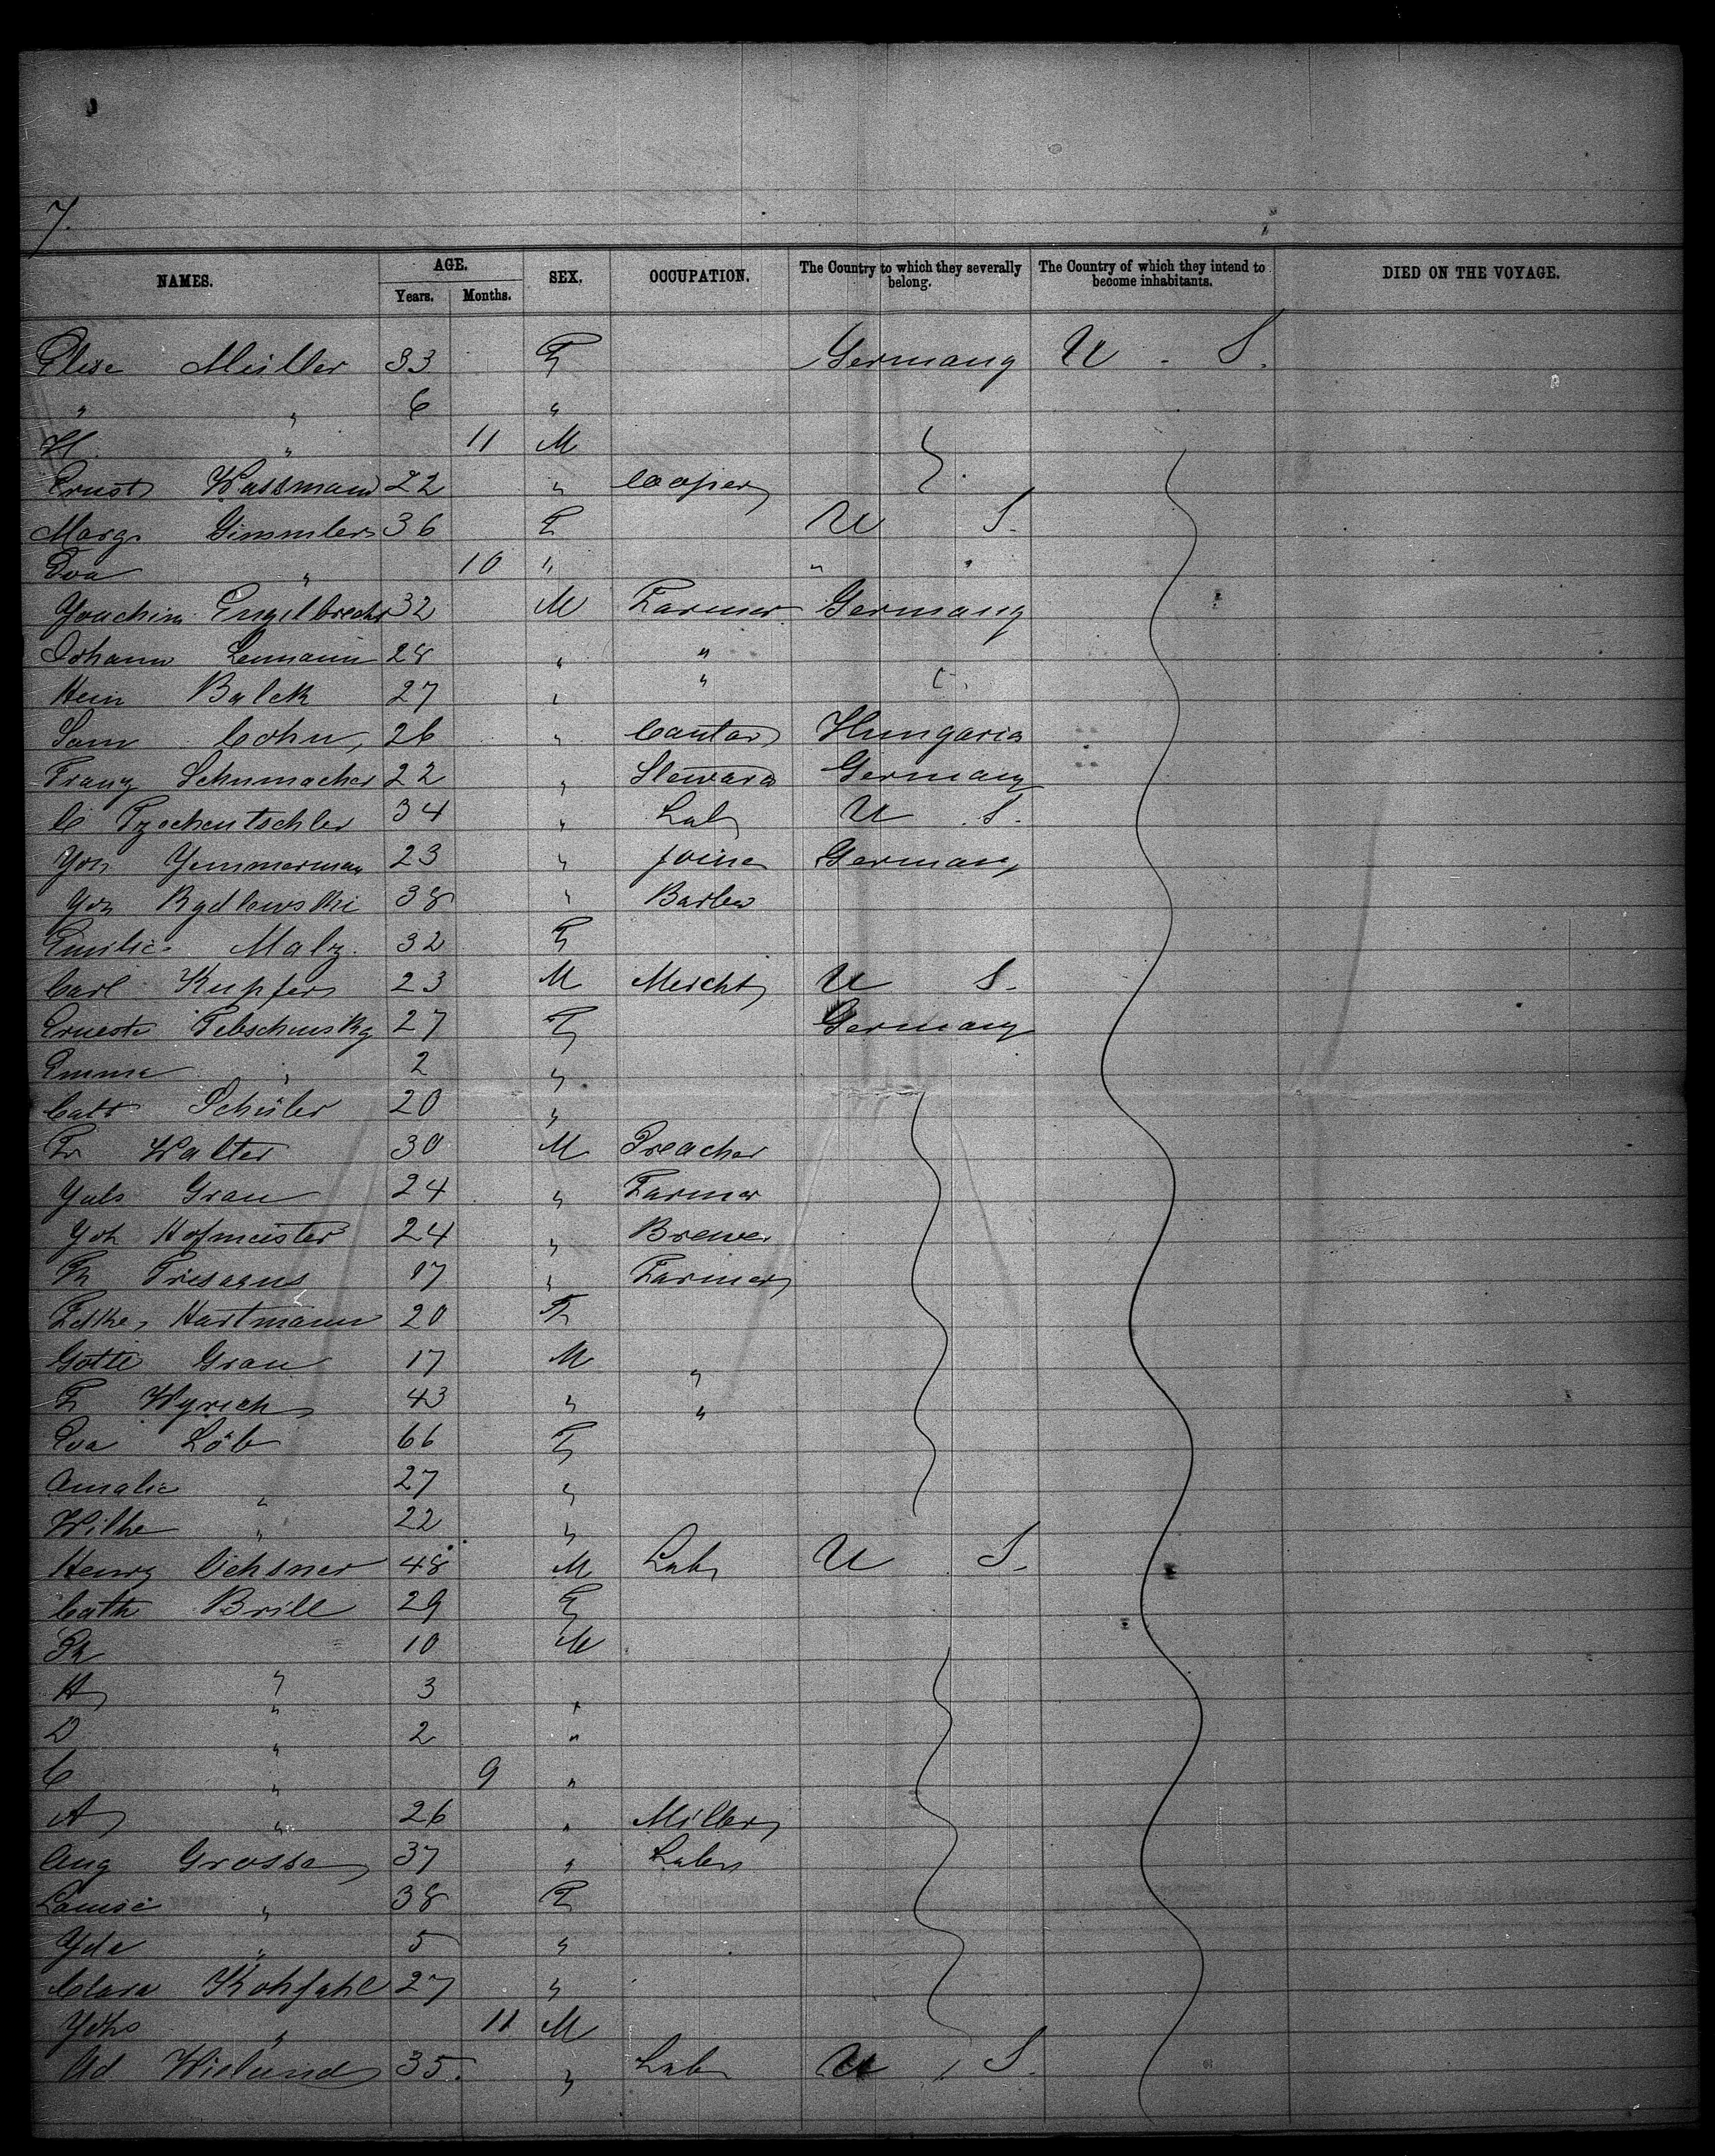 7.
NAMES. AGE. SEX. OCCUPATION. The Country to which they severally belong. The Country of which they intend to become inhabitants. DIED ON THE VOYAGE.
Years. Months.
Elise Müller 33 F Germany U. S.
" " 6 "
H. " 11 M
Ernst Wassmann 22 " Cooper
Marg. Gimmler 36 F U S.
Eva " 10 " " "
Joachim Engelbrecht 32 M Farmer Germany
Johann Lemann 28 " "
Hein Balck 27 " "
Sam Cohn, 26 " Cantor Hungaria
Franz Schumacher 22 " Steward Germany
C Tzschentschler 34 " Lab U S.
Jos Zimmerman 23 " joiner Germany
Jos Rydlewski 38 " Barber
Emilie Malz. 32 F
Carl Kupfer 23 M Mercht U S.
Erneste 27 F Germany
Emma " 2 "
Cath Schüler 20 "
Fr Walter 30 M Preacher
Juls Grau 24 " Farmer
Joh Hofmeister 24 " Brewer
17 " Farmer
Hartmann 20 F
Gotte Grau 17 M "
F Wyrich 43 " "
Eva Löb 66 F
Amalie " 27 "
Wilhe " 22 "
Henry Ochsner 48 M Lab U S.
Cath Brill 29 F
Ph " 10 M
H " 3 "
D " 2 "
C " 9 "
A " 26 " Miller
Aug Grosse 37 " Labr
Louise " 38 F
Yda " 5 "
Clara Kohfahl 27 "
Johs " 11 M
Ad Wieland 35. " Lab U S.